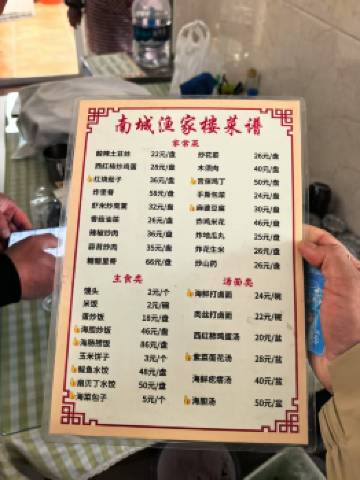 南城渔家楼菜谱
家常菜
酸辣土豆丝 22元/盘
西红柿炒鸡蛋 28元/盘
红烧茄子 36元/盘
炸里脊 58元/盘
虾米炒窝蛋 32元/盘
香菇油菜 26元/盘
辣椒炒肉 36元/盘
蒜苔炒肉 35元/盘
糖醋里脊 66元/盘
炒花菜 26元/盘
木须肉 40元/盘
宫保鸡丁 50元/盘
手撕包菜 24元/盘
麻婆豆腐 30元/盘
炸鸡米花 46元/盘
炸地瓜丸 25元/盘
炸花生米 26元/盘
炒山药 26元/盘
主食类
馒头 2元/个
米饭 2元/碗
蛋炒饭 18元/盘
海胆炒饭 46元/盘
海肠捞饭 86元/盘
玉米饼子 3元/个
鲅鱼水饺 48元/盘
扇贝丁水饺 50元/盘
海菜包子 5元/个
汤面类
海鲜打卤面 24元/碗
肉丝打卤面 22元/碗
西红柿鸡蛋汤 20元/盆
紫菜蛋花汤 28元/盆
海鲜疙瘩汤 40元/盆
海胆汤 50元/盆